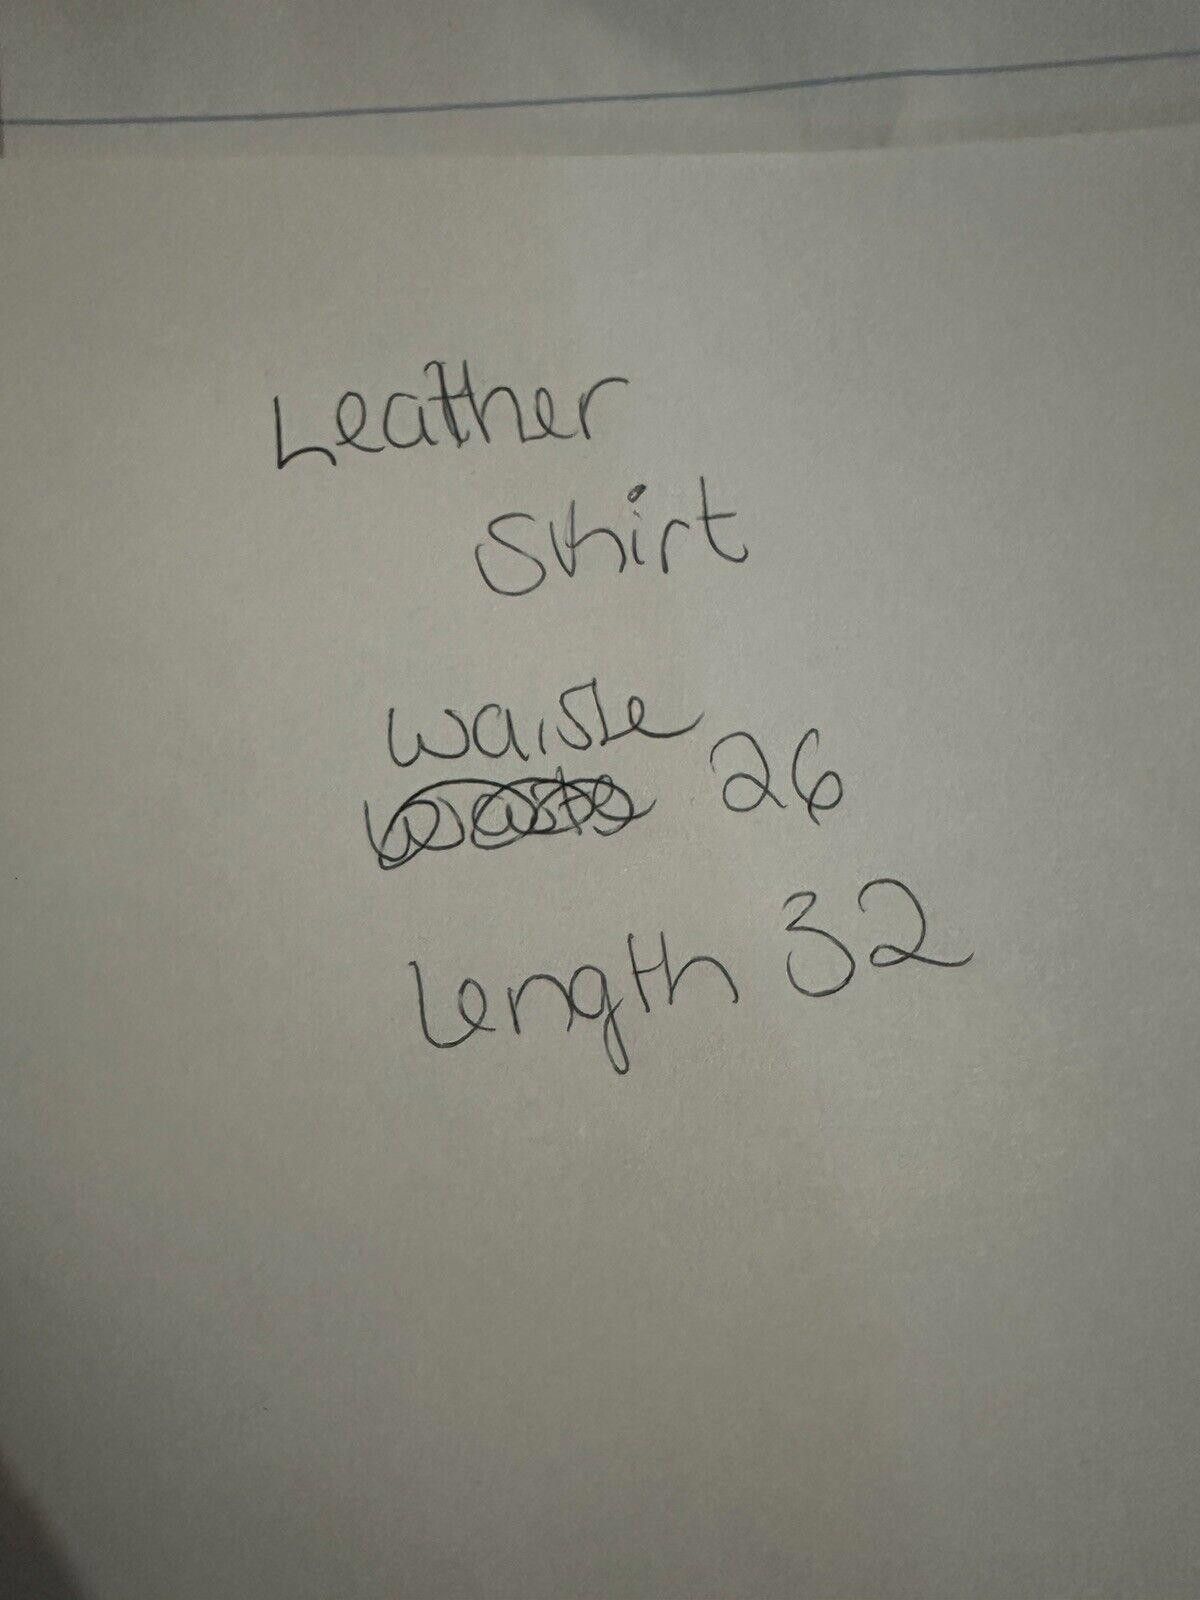 Leather
Skirt
waiste
waste 26
length 32